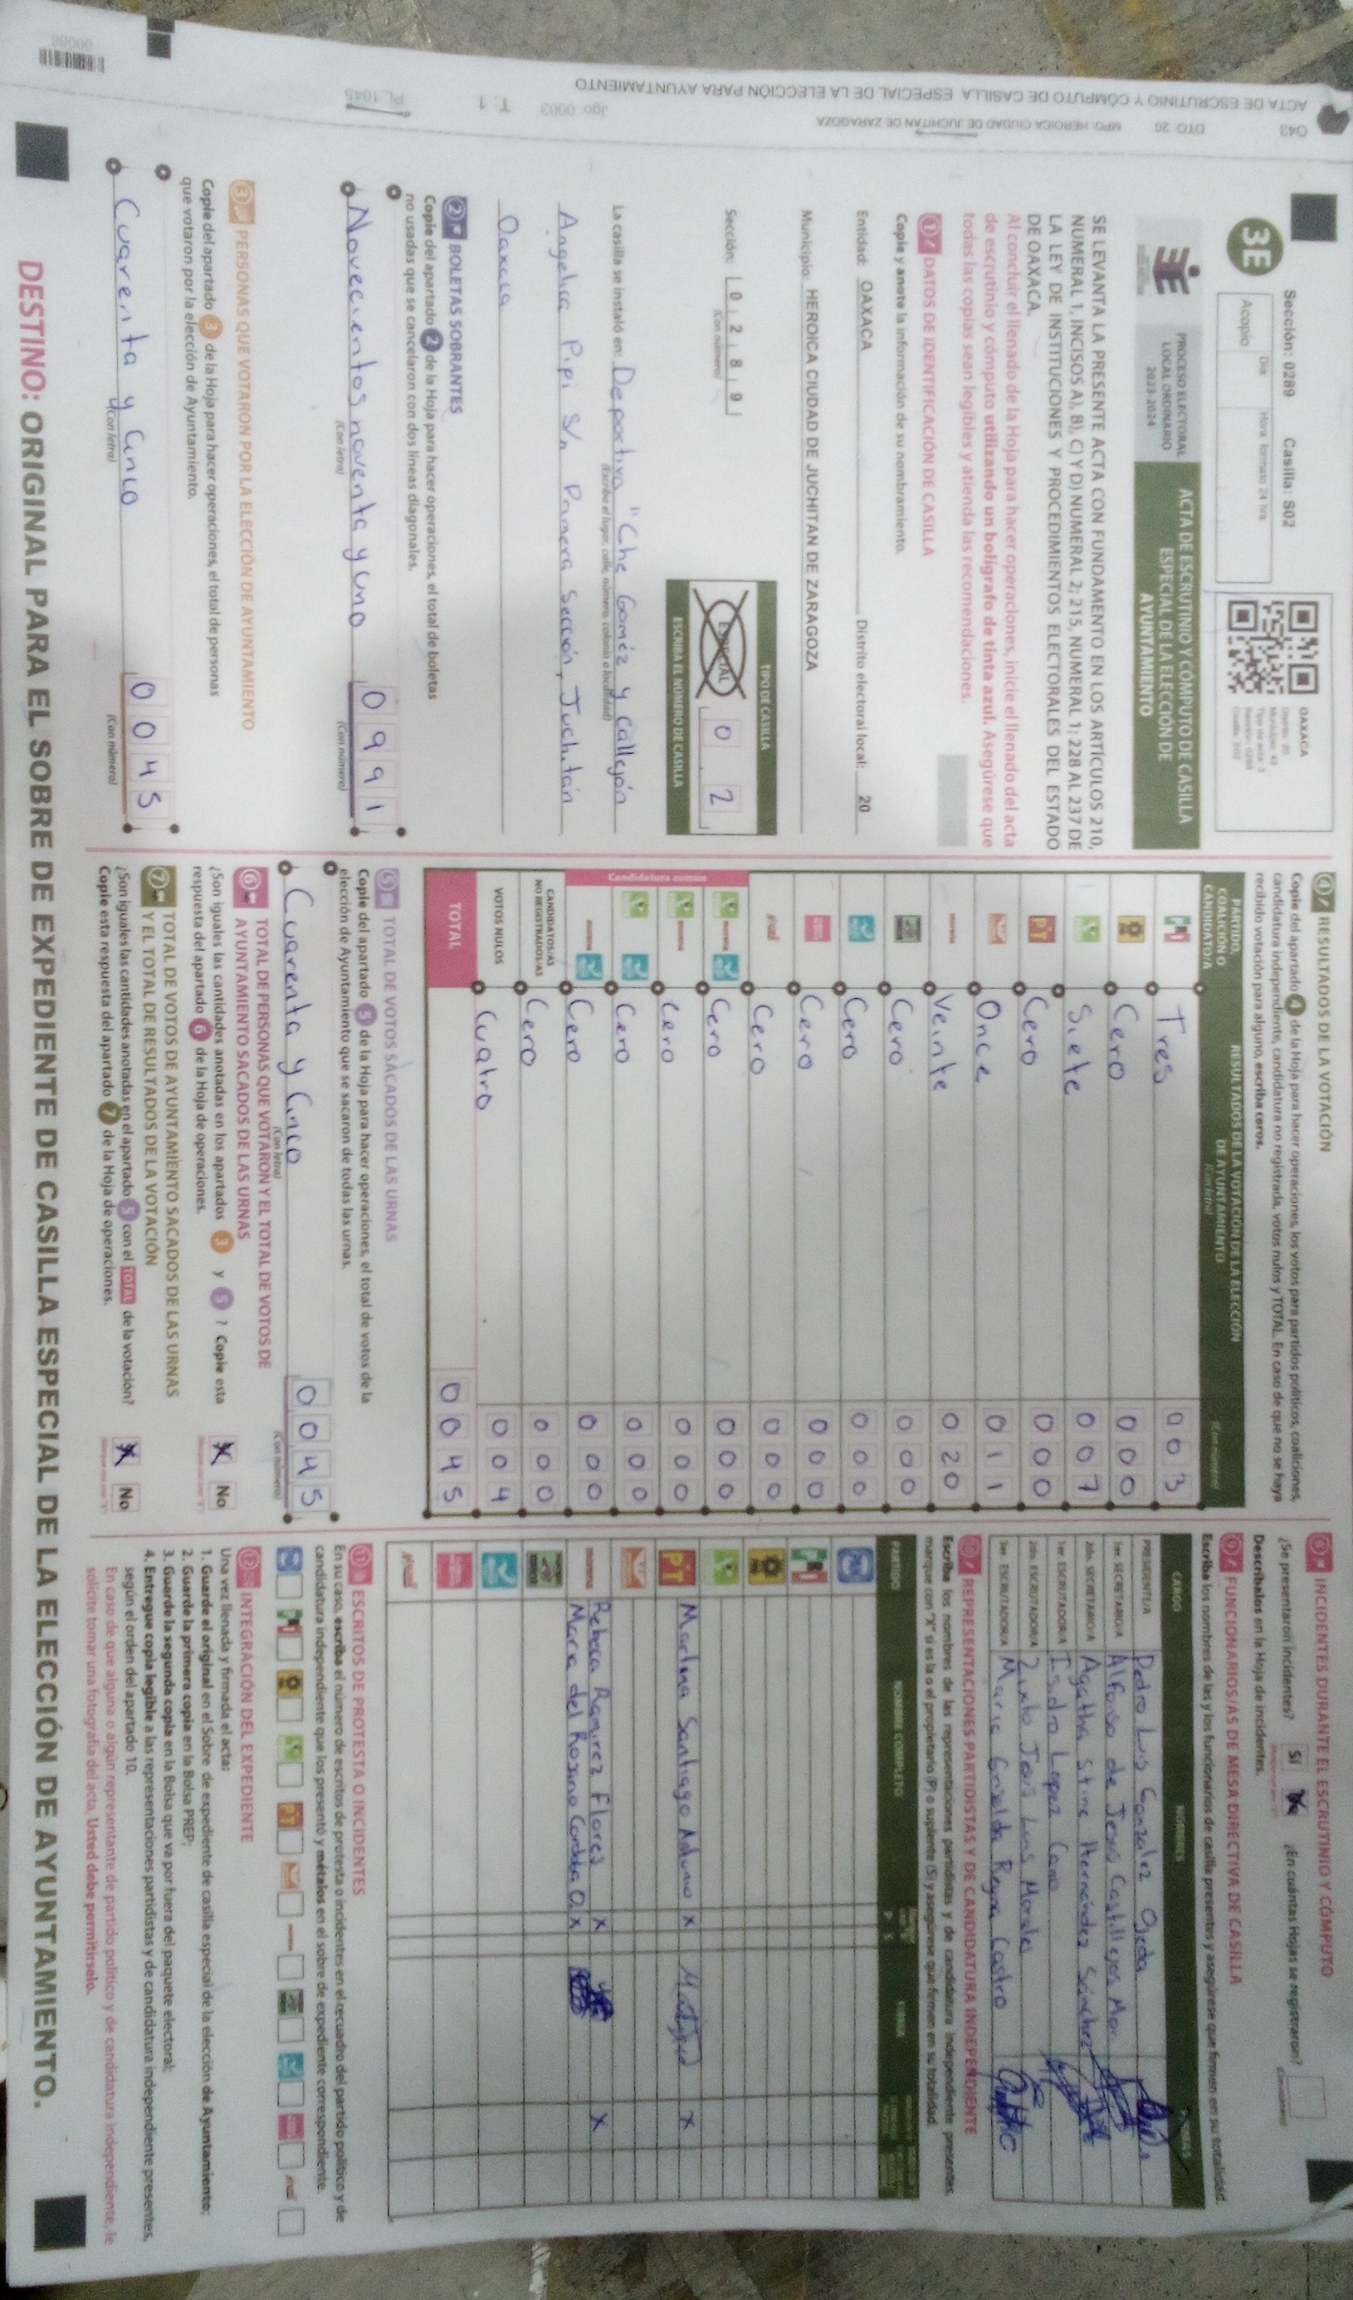 043
DTO: 20
MPO: HEROICA CIUDAD DE JUCHITAN DE ZARAGOZA
Jgo: 0003
T: 1
PL. 1045
ACTA DE ESCRUTINIO Y CÓMPUTO DE CASILLA ESPECIAL DE LA ELECCIÓN PARA AYUNTAMIENTO
Sección: 0289 Casilla: S02
3E
Día
Hora formato 24 hrs
Acopio
OAXACA
PROCESO ELECTORAL
LOCAL ORDINARIO
2023-2024
ACTA DE ESCRUTINIO Y CÓMPUTO DE CASILLA
ESPECIAL DE LA ELECCIÓN DE
AYUNTAMIENTO
SE LEVANTA LA PRESENTE ACTA CON FUNDAMENTO EN LOS ARTÍCULOS 210,
NUMERAL 1, INCISOS A), B), C) Y D) NUMERAL 2; 215, NUMERAL 1; 228 AL 237 DE
LA LEY DE INSTITUCIONES Y PROCEDIMIENTOS ELECTORALES DEL ESTADO
DE OAXACA.
Al concluir el llenado de la Hoja para hacer operaciones, inicie el llenado del acta
de escrutinio y cómputo utilizando un bolígrafo de tinta azul. Asegúrese que
todas las copias sean legibles y atienda las recomendaciones.
1 DATOS DE IDENTIFICACIÓN DE CASILLA
Copie y anote la información de su nombramiento.
Entidad: OAXACA Distrito electoral local: 20
Municipio: HEROICA CIUDAD DE JUCHITAN DE ZARAGOZA
TIPO DE CASILLA
Sección: 0 2 8 9
(Con número)
ESPECIAL 0 2
ESCRIBA EL NÚMERO DE CASILLA
La casilla se instaló en: Deportiva "Che Goméz y callejón
(Escriba el lugar, calle, número, colonia o localidad)
Angelica Pipi S/n Primera Sección, Juchitán
Oaxaca
2 BOLETAS SOBRANTES
Copie del apartado 2 de la Hoja para hacer operaciones, el total de boletas
no usadas que se cancelaron con dos líneas diagonales.
Novecientos noventa y uno 0 9 9 1
(Con letra) (Con número)
3 PERSONAS QUE VOTARON POR LA ELECCIÓN DE AYUNTAMIENTO
Copie del apartado 3 de la Hoja para hacer operaciones, el total de personas
que votaron por la elección de Ayuntamiento.
Cuarenta y Cinco 0 0 4 5
(Con letra) (Con número)
4 RESULTADOS DE LA VOTACIÓN
Copie del apartado 4 de la Hoja para hacer operaciones, los votos para partidos políticos, coaliciones,
candidatura independiente, candidatura no registrada, votos nulos y TOTAL. En caso de que no se haya
recibido votación para alguno, escriba ceros.
PARTIDO,
COALICIÓN O
CANDIDATO/A
RESULTADOS DE LA VOTACIÓN DE LA ELECCIÓN
DE AYUNTAMIENTO
(Con letra)
(Con número)
Tres 0 0 3
Cero 0 0 0
Siete 0 0 7
PT Cero 0 0 0
Once 0 1 1
morena Veinte 0 2 0
Cero 0 0 0
Cero 0 0 0
Cero 0 0 0
Cero 0 0 0
Candidatura común
Cero 0 0 0
Cero 0 0 0
Cero 0 0 0
Cero 0 0 0
CANDIDATOS/AS
NO REGISTRADOS/AS
Cero 0 0 0
VOTOS NULOS Cuatro 0 0 4
TOTAL 0 0 4 5
5 TOTAL DE VOTOS SACADOS DE LAS URNAS
Copie del apartado 5 de la Hoja para hacer operaciones, el total de votos de la
elección de Ayuntamiento que se sacaron de todas las urnas.
Cuarenta y Cinco 0 0 4 5
(Con letra) (Con número)
6 TOTAL DE PERSONAS QUE VOTARON Y EL TOTAL DE VOTOS DE
AYUNTAMIENTO SACADOS DE LAS URNAS
¿Son iguales las cantidades anotadas en los apartados 3 y 5 ? Copie esta
respuesta del apartado 6 de la Hoja de operaciones.
X No
7 TOTAL DE VOTOS DE AYUNTAMIENTO SACADOS DE LAS URNAS
Y EL TOTAL DE RESULTADOS DE LA VOTACIÓN
¿Son iguales las cantidades anotadas en el apartado 5 con el TOTAL de la votación?
Copie esta respuesta del apartado 7 de la Hoja de operaciones.
X No
8 INCIDENTES DURANTE EL ESCRUTINIO Y CÓMPUTO
¿Se presentaron incidentes? Sí X ¿En cuántas Hojas se registraron?
Descríbalos en la Hoja de incidentes.
9 FUNCIONARIOS/AS DE MESA DIRECTIVA DE CASILLA
Escriba los nombres de las y los funcionarios de casilla presentes y asegúrese que firmen en su totalidad.
CARGO NOMBRES FIRMAS
PRESIDENTE/A Pedro Luis Gonzalez Ojeda
1er. SECRETARIO/A Alfonso de Jesus Castillejos Mor
2do. SECRETARIO/A Agatha Stine Hernández Sánchez
1er. ESCRUTADOR/A Isidro Lopez Cano
2do. ESCRUTADOR/A Zixto Jesus Luis Morales
3er. ESCRUTADOR/A Maria Griselda Reyna Castro
10 REPRESENTACIONES PARTIDISTAS Y DE CANDIDATURA INDEPENDIENTE
Escriba los nombres de las representaciones partidistas y de candidatura independiente presentes,
marque con "X" si es la o el propietario (P) o suplente (S) y asegúrese que firmen en su totalidad.
PARTIDO NOMBRE COMPLETO P S FIRMA
PT Martina Santiago Antonio X X
morena Rebeca Ramirez Flores X X
Maria del Rosario Cordoba O. X
11 ESCRITOS DE PROTESTA O INCIDENTES
En su caso, escriba el número de escritos de protesta o incidentes en el recuadro del partido político y de
candidatura independiente que los presentó y métalos en el sobre de expediente correspondiente.
12 INTEGRACIÓN DEL EXPEDIENTE
Una vez llenada y firmada el acta:
1. Guarde el original en el Sobre de expediente de casilla especial de la elección de Ayuntamiento;
2. Guarde la primera copia en la Bolsa PREP;
3. Guarde la segunda copia en la Bolsa que va por fuera del paquete electoral;
4. Entregue copia legible a las representaciones partidistas y de candidatura independiente presentes,
según el orden del apartado 10.
En caso de que alguna o algún representante de partido político y de candidatura independiente, le
solicite tomar una fotografía del acta, Usted debe permitírselo.
DESTINO: ORIGINAL PARA EL SOBRE DE EXPEDIENTE DE CASILLA ESPECIAL DE LA ELECCIÓN DE AYUNTAMIENTO.